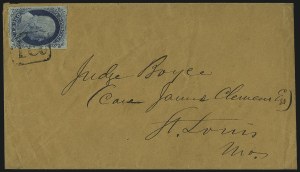 Judge Boyce
(Care James Clemens Esq)
St. Louis
Mo.